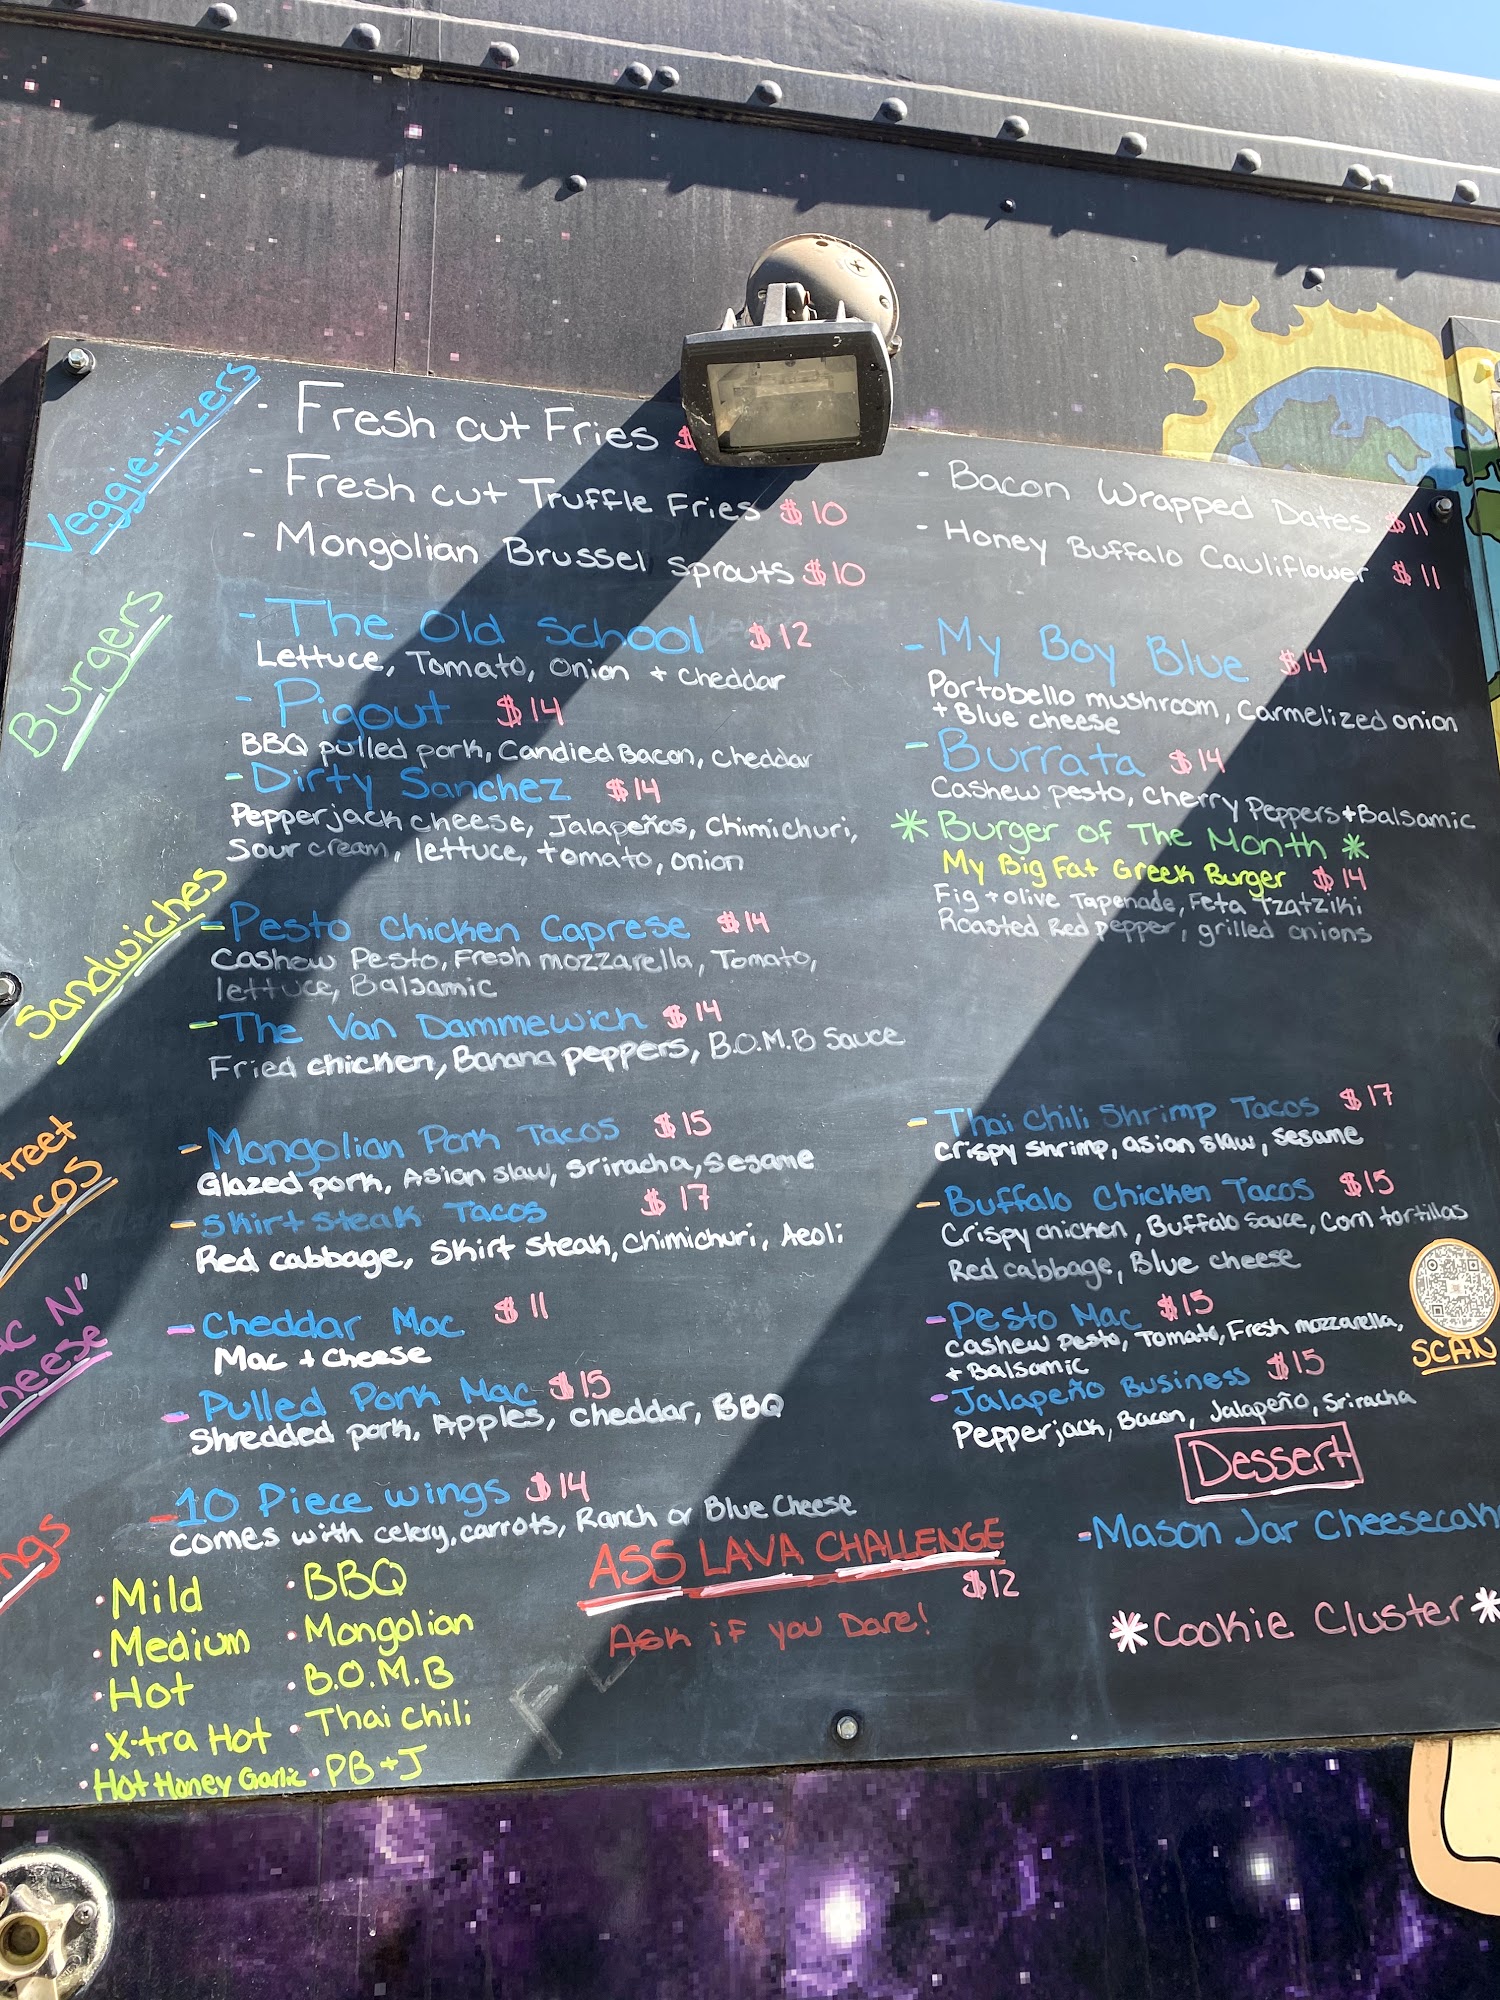 Veggie-tizers
- Fresh cut Fries $
- Fresh cut Truffle Fries $10
- Mongolian Brussel Sprouts $10
- Bacon Wrapped Dates $11
- Honey Buffalo Cauliflower $11
Burgers
- The Old School $12
Lettuce, Tomato, Onion + Cheddar
- Pigout $14
BBQ pulled pork, Candied Bacon, Cheddar
- Dirty Sanchez $14
Pepperjack cheese, Jalapeños, Chimichuri,
Sour cream, lettuce, tomato, onion
- My Boy Blue $14
Portobello mushroom, Carmelized onion
+ Blue cheese
- Burrata $14
Cashew pesto, Cherry Peppers + Balsamic
* Burger of The Month *
My Big Fat Greek Burger $14
Fig + olive Tapenade, Feta Tzatziki
Roasted Red pepper, grilled onions
Sandwiches
- Pesto Chicken Caprese $14
Cashew Pesto, Fresh mozzarella, Tomato,
lettuce, Balsamic
- The Van Dammewich $14
Fried chicken, Banana peppers, B.O.M.B Sauce
treet
Tacos
- Mongolian Pork Tacos $15
Glazed pork, Asian slaw, Sriracha, Sesame
- Skirt Steak Tacos $17
Red cabbage, Skirt Steak, Chimichuri, Aeoli
- Thai Chili Shrimp Tacos $17
Crispy Shrimp, asian slaw, Sesame
- Buffalo Chicken Tacos $15
Crispy chicken, Buffalo Sauce, Corn tortillas
Red cabbage, Blue cheese
ac N"
heese
- Cheddar Mac $11
Mac + Cheese
- Pulled Pork Mac $15
Shredded pork, Apples, Cheddar, BBQ
- Pesto Mac $15
Cashew Pesto, Tomato, Fresh mozzarella,
+ Balsamic
- Jalapeño Business $15
Pepperjack, Bacon, Jalapeño, Sriracha
SCAN
ngs
- 10 Piece wings $14
comes with celery, carrots, Ranch or Blue Cheese
· Mild
· Medium
· Hot
· X-tra Hot
· Hot Honey Garlic
· BBQ
· Mongolian
· B.O.M.B
· Thai Chili
· PB + J
ASS LAVA CHALLENGE
$12
Ask if you Dare!
Dessert
- Mason Jar Cheesecak
* Cookie Cluster *